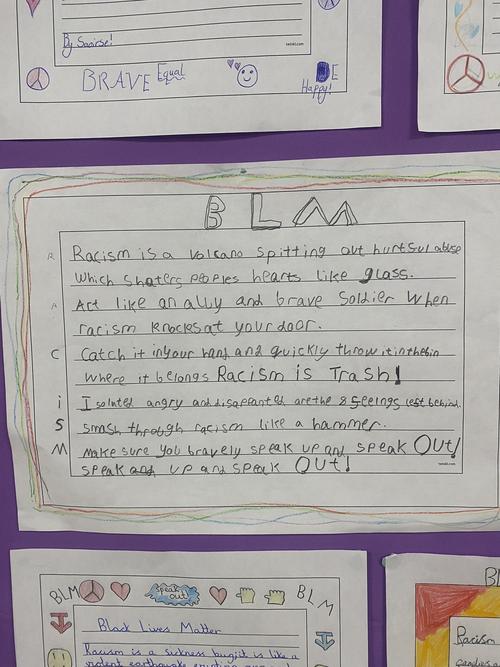 By Saoirse!
twinkl.com
BRAVE Equal
BE
Happy!
BLM
R Racism is a volcano spitting out hurtful abuse
which shaters peoples hearts like glass.
A Act like an ally and brave soldier when
racism knocks at your door.
C Catch it in your hand and quickly throw it in the bin
where it belongs Racism is Trash!
i Isolated angry and disappointed are the feelings left behind.
S smash through racism like a hammer.
M Make sure you bravely speak up and speak OUt!
speak and up and speak OUT!
twinkl.com
BLM speak out! BLM
Black Lives Matter
Racism is a sickness is like a
violent earthquake
BL
Racism